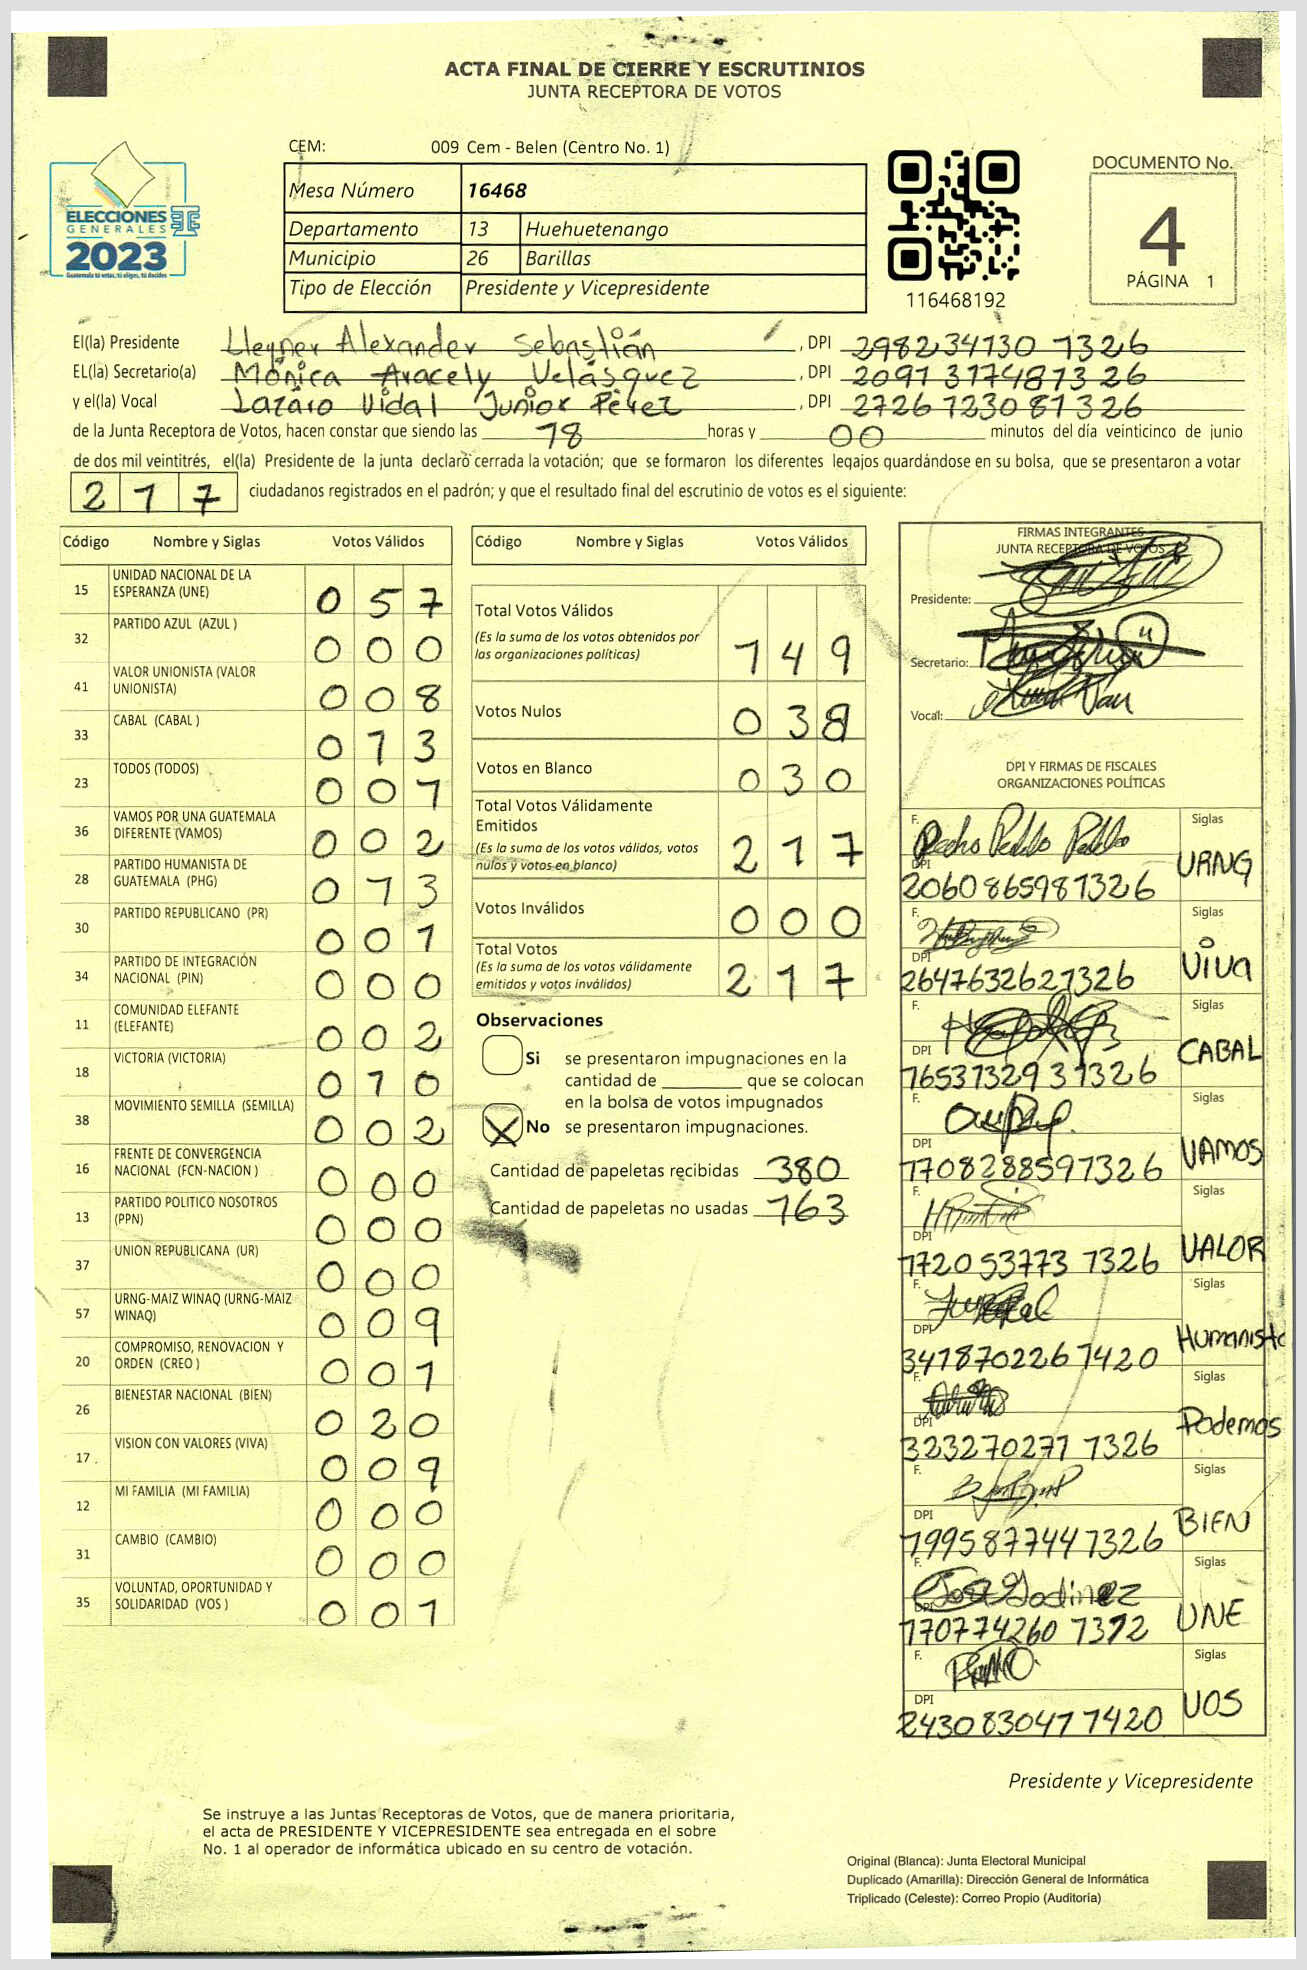 ACTA FINAL DE CIERRE Y ESCRUTINIOS
JUNTA RECEPTORA DE VOTOS
CEM: 009 Cem - Belen (Centro No. 1)
Mesa Número 16468
Departamento 13 Huehuetenango
Municipio 26 Barillas
Tipo de Elección Presidente y Vicepresidente
ELECCIONES
GENERALES
2023
Guatemala tú votas, tú eliges, tú decides
116468192
DOCUMENTO No.
4
PÁGINA 1
El(la) Presidente Lleyner Alexander Sebastián, DPI 298234130 1326
EL(la) Secretario(a) Mónica Aracely Velásquez, DPI 2091317481326
y el(la) Vocal Lazáro Vidal Junior Pérez, DPI 2726123081326
de la Junta Receptora de Votos, hacen constar que siendo las 18 horas y 00 minutos del día veinticinco de junio
de dos mil veintitrés, el(la) Presidente de la junta declaró cerrada la votación; que se formaron los diferentes legajos guardándose en su bolsa, que se presentaron a votar
217 ciudadanos registrados en el padrón; y que el resultado final del escrutinio de votos es el siguiente:
Código Nombre y Siglas Votos Válidos
15 UNIDAD NACIONAL DE LA ESPERANZA (UNE) 057
32 PARTIDO AZUL (AZUL ) 000
41 VALOR UNIONISTA (VALOR UNIONISTA) 008
33 CABAL (CABAL ) 013
23 TODOS (TODOS) 001
36 VAMOS POR UNA GUATEMALA DIFERENTE (VAMOS) 002
28 PARTIDO HUMANISTA DE GUATEMALA (PHG) 013
30 PARTIDO REPUBLICANO (PR) 001
34 PARTIDO DE INTEGRACIÓN NACIONAL (PIN) 000
11 COMUNIDAD ELEFANTE (ELEFANTE) 002
18 VICTORIA (VICTORIA) 010
38 MOVIMIENTO SEMILLA (SEMILLA) 002
16 FRENTE DE CONVERGENCIA NACIONAL (FCN-NACION ) 000
13 PARTIDO POLITICO NOSOTROS (PPN) 000
37 UNION REPUBLICANA (UR) 000
57 URNG-MAIZ WINAQ (URNG-MAIZ WINAQ) 009
20 COMPROMISO, RENOVACION Y ORDEN (CREO ) 001
26 BIENESTAR NACIONAL (BIEN) 020
17 VISION CON VALORES (VIVA) 009
12 MI FAMILIA (MI FAMILIA) 000
31 CAMBIO (CAMBIO) 000
35 VOLUNTAD, OPORTUNIDAD Y SOLIDARIDAD (VOS ) 001
Código Nombre y Siglas Votos Válidos
Total Votos Válidos 149
(Es la suma de los votos obtenidos por
las organizaciones políticas)
Votos Nulos 038
Votos en Blanco 030
Total Votos Válidamente
Emitidos 217
(Es la suma de los votos válidos, votos
nulos y votos en blanco)
Votos Inválidos 000
Total Votos 217
(Es la suma de los votos válidamente
emitidos y votos inválidos)
Observaciones
Si se presentaron impugnaciones en la
cantidad de ________ que se colocan
en la bolsa de votos impugnados
X No se presentaron impugnaciones.
Cantidad de papeletas recibidas 380
Cantidad de papeletas no usadas 163
FIRMAS INTEGRANTES
JUNTA RECEPTORA DE VOTOS
Presidente:
Secretario:
Vocal:
DPI Y FIRMAS DE FISCALES
ORGANIZACIONES POLÍTICAS
F. Pedro Pedro Pablo Siglas
DPI 2060865981326 URNG
F. Siglas
DPI 2647632621326 Viva
F. Siglas
DPI 1653132931326 CABAL
F. Siglas
DPI 1708288591326 VAMOS
F. Siglas
DPI 172053773 1326 VALOR
F. Siglas
DPI 3418702261420 Humanista
F. Siglas
DPI 323270271 1326 Podemos
F. Siglas
DPI 1995877441326 BIEN
F. José Godinez Siglas
DPI 170774260 1312 UNE
F. Siglas
DPI 2430830471420 VOS
Presidente y Vicepresidente
Se instruye a las Juntas Receptoras de Votos, que de manera prioritaria,
el acta de PRESIDENTE Y VICEPRESIDENTE sea entregada en el sobre
No. 1 al operador de informática ubicado en su centro de votación.
Original (Blanca): Junta Electoral Municipal
Duplicado (Amarilla): Dirección General de Informática
Triplicado (Celeste): Correo Propio (Auditoría)